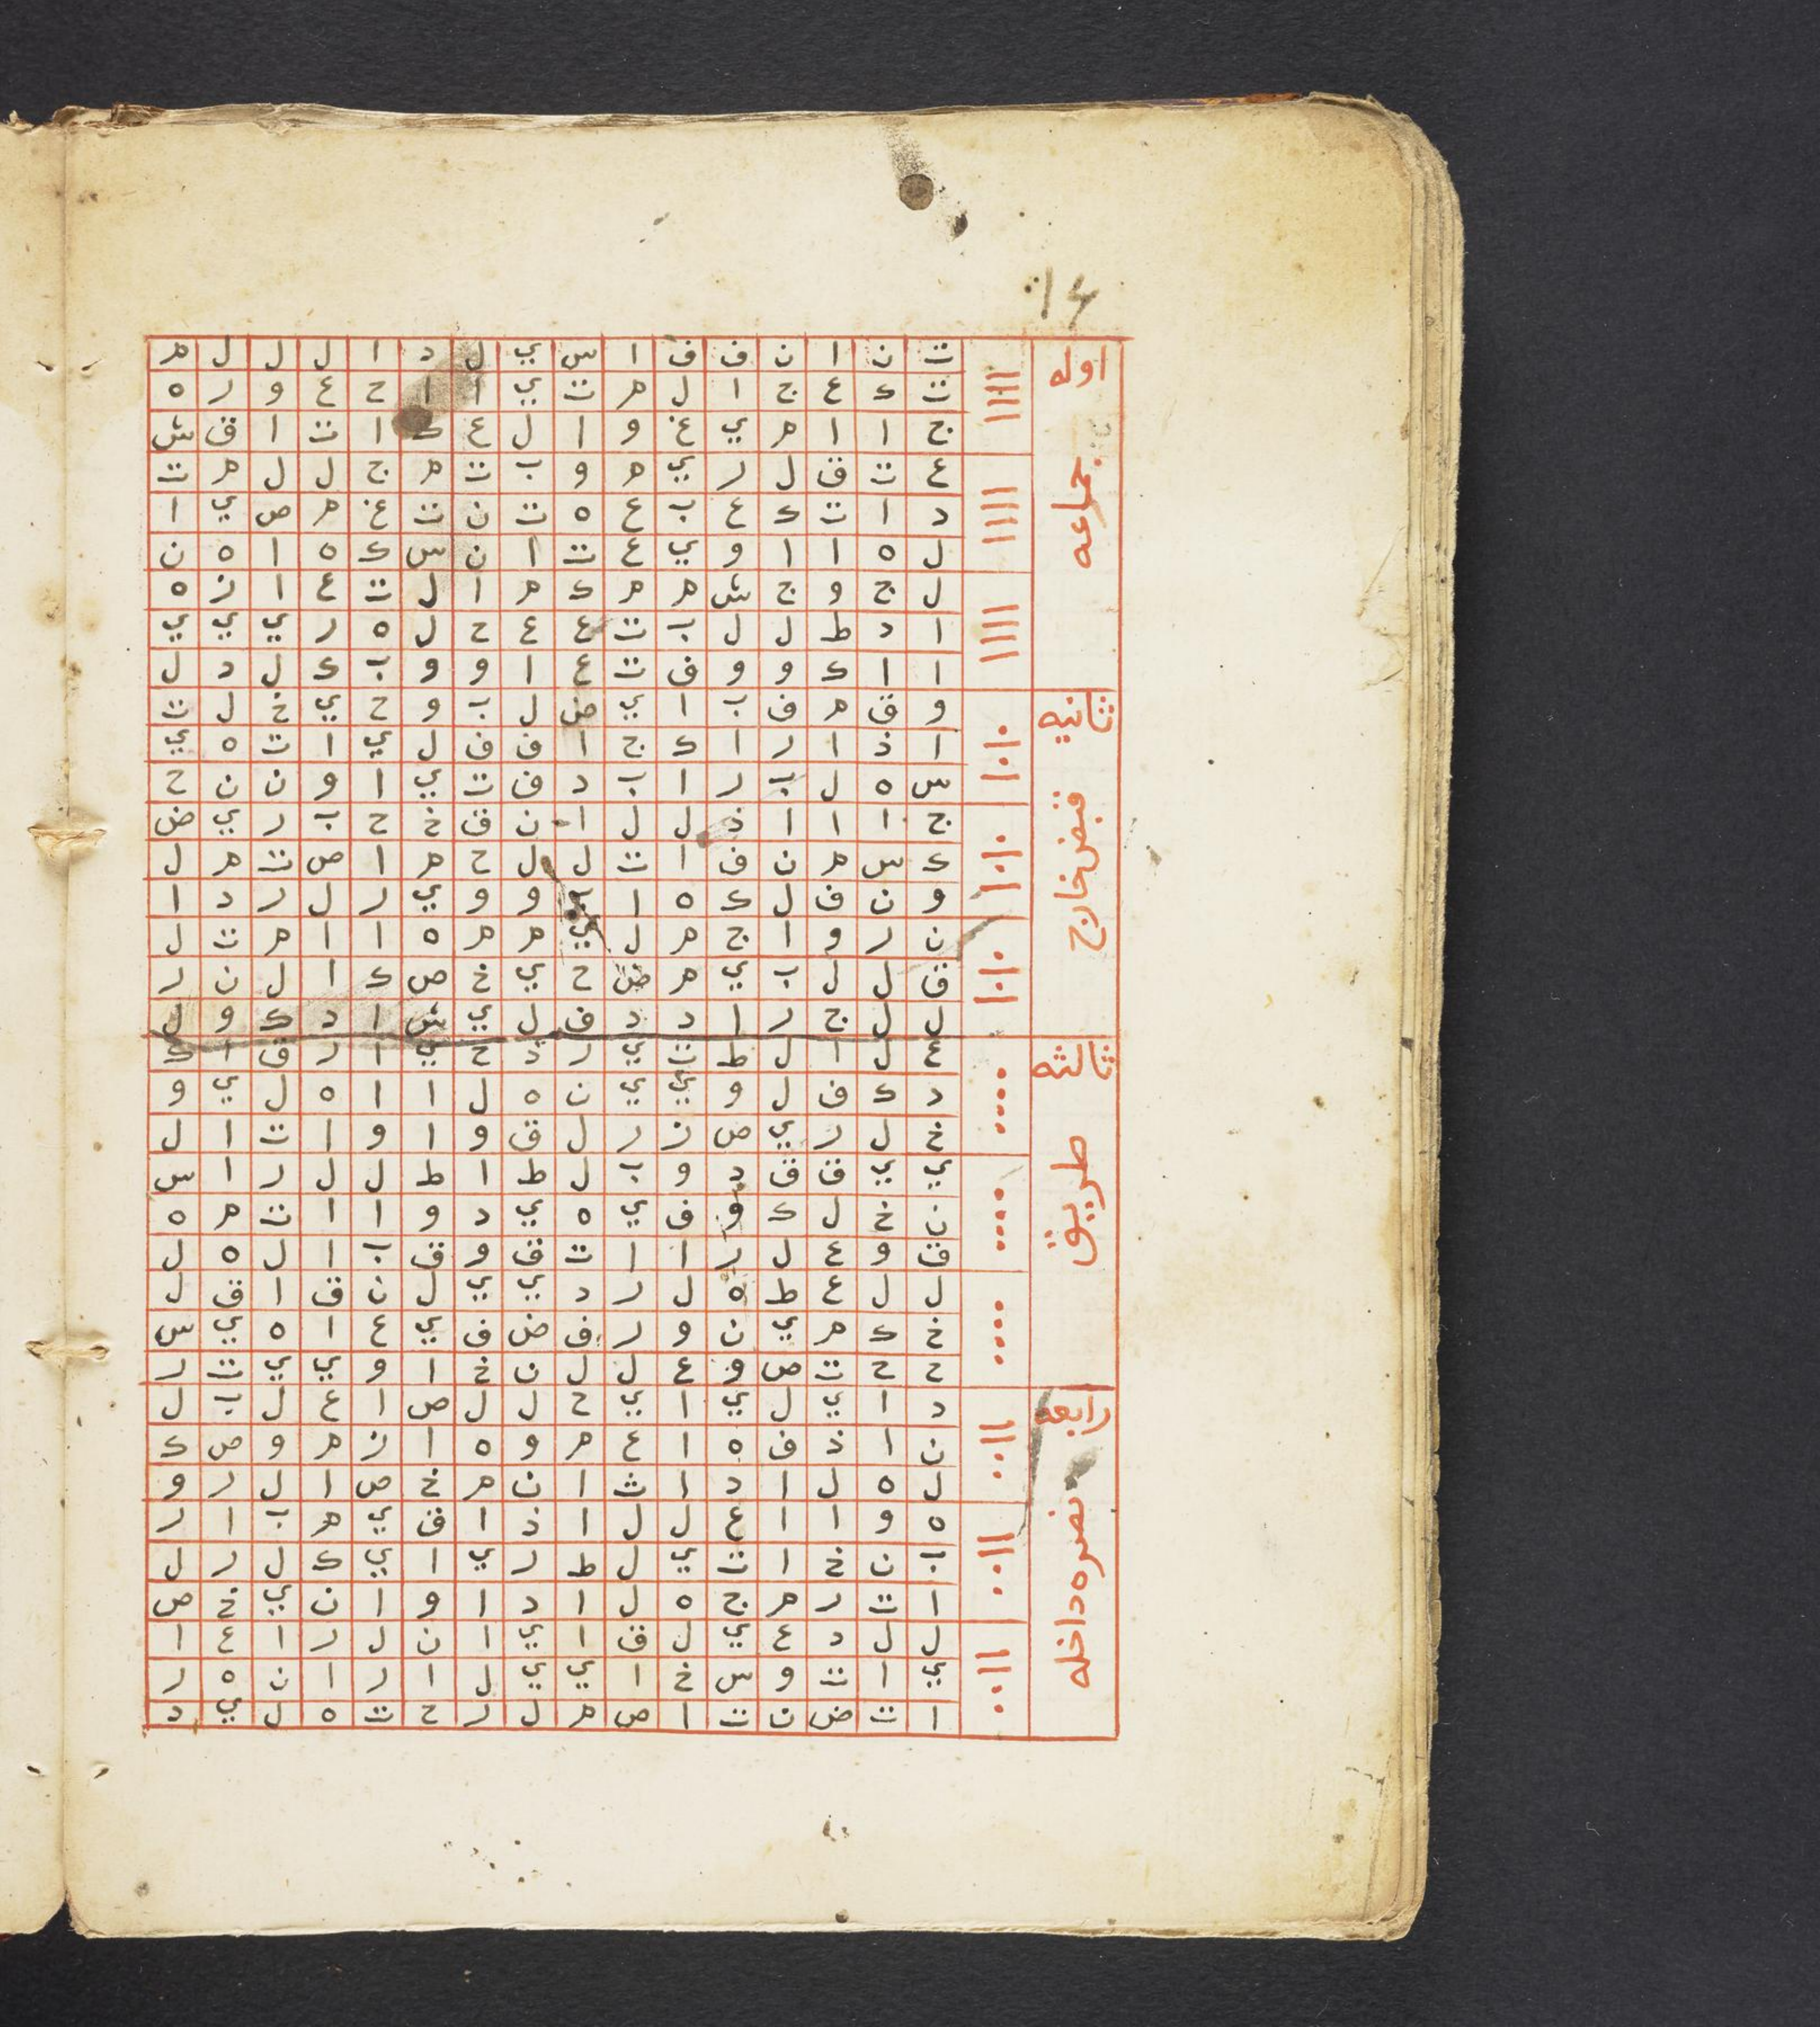 ١٤
اوله جماعه
ت ن ا ن ف ف ا س ي ل د ا ل ل ل م
ت ك ع ج ا ل م ت ي ا ا ح ع و ر ه
ج ا ا م ي غ و ا ل ع ك ا ت ا ق ش
ع ت ق ل ر ي م و ب ت م ج ل ل م ت
د ا ت ك ع ب ع ه ت ن ت غ م ص ي ا
ل ه ا ا و ي ع ت ا ن س ك ه ا ه ن
ل ج و ج ش م م ك م ا ل ت ع ا ز ه
ا د ط ل ل ب ت ع ع ح ل ه ر ي ي ي
ا ا ك و و ف ت ع ا و و ب ك ل د ل
ثانيه قبض خارج
و ق م ف ب ا ي ض ل ب و ح ي خ ل ت
ا ذ ا ر ا ك ج ا ف ف ل ي ا ت ه ي
س ه ل ب ر ا ب د ف ت ي ا و ن ن ح
ج ا ا ا ذ ل ل ا ن ق خ ح ب ر ي ض
ك س م ن ف ا ت ل ل ح م ا ص ت م ل
و ن ف ل ك ه ا و و ي ر ل ر د ا
ن ر و ا ج م ل ي م م ه ا ا م ت ل
ق ل ل ب ي م ض ح ي خ ص ك ا ل ن ر
ل ل ج ر ا د د ف ل ي ش ا د ك و ل
ثالثه طريق
ع ل ا ل ط ت ي ر د ح ي ا ر ق ا ك
د ك ف ل و ي ي ن ه ل ا ا ه ل ي و
خ ل ر ي ص ز ر ل ق و ا و ا ت ا ل
ي ي ق ق د و ب ل ط ا ط ل ل ر ا س
ن خ ل ك و ف ي ه ي د و ا ا ت م ه
ق و ع ل ر ا ا ت ق و ق ب ا ل ه ل
ل ل ع ط ه ل ر د ي ي ل ن ق ا ق ل
خ ك م ي ن و ر ف ض ف ي ع ا ه ي س
ح ح ت ص و ع ل ل ن خ ا و ي ي ت ر
رابعه نصره داخله
د ا ي ل ي ا ي ح ل ل ص ا ع ل ب ل
ن ا ذ ف ه ا ع م و ه ا ز م و ص ك
ل ه ل ا د ا ث ا ن م خ ص ا ل ر و
ه و ا ا ع ل ل ا ذ ا ق ي م ب ا ر
ب ن خ ا ت ي ل ط ر ي ا ي ك ل ر ل
ا ت ر م ج ه ل ا د ا و ا ن ي خ ص
ل ل د ع ي ل ق ا ي ا ن ل ر ا ع ا
ي ا ت و س خ ا ي ي ل ا ر ا ن ه ر
ا ت ض ن ت ا ص م ل ر ح ت ه ل ي د